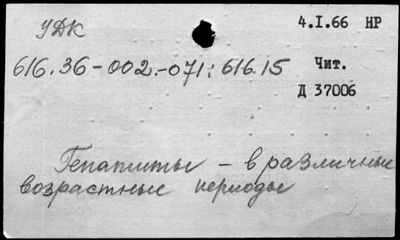 УДК
4.I.66 НР
616.36-002.-071:616.15
Чит.
Д 37006
Гепатиты - в различные
возрастные периоды